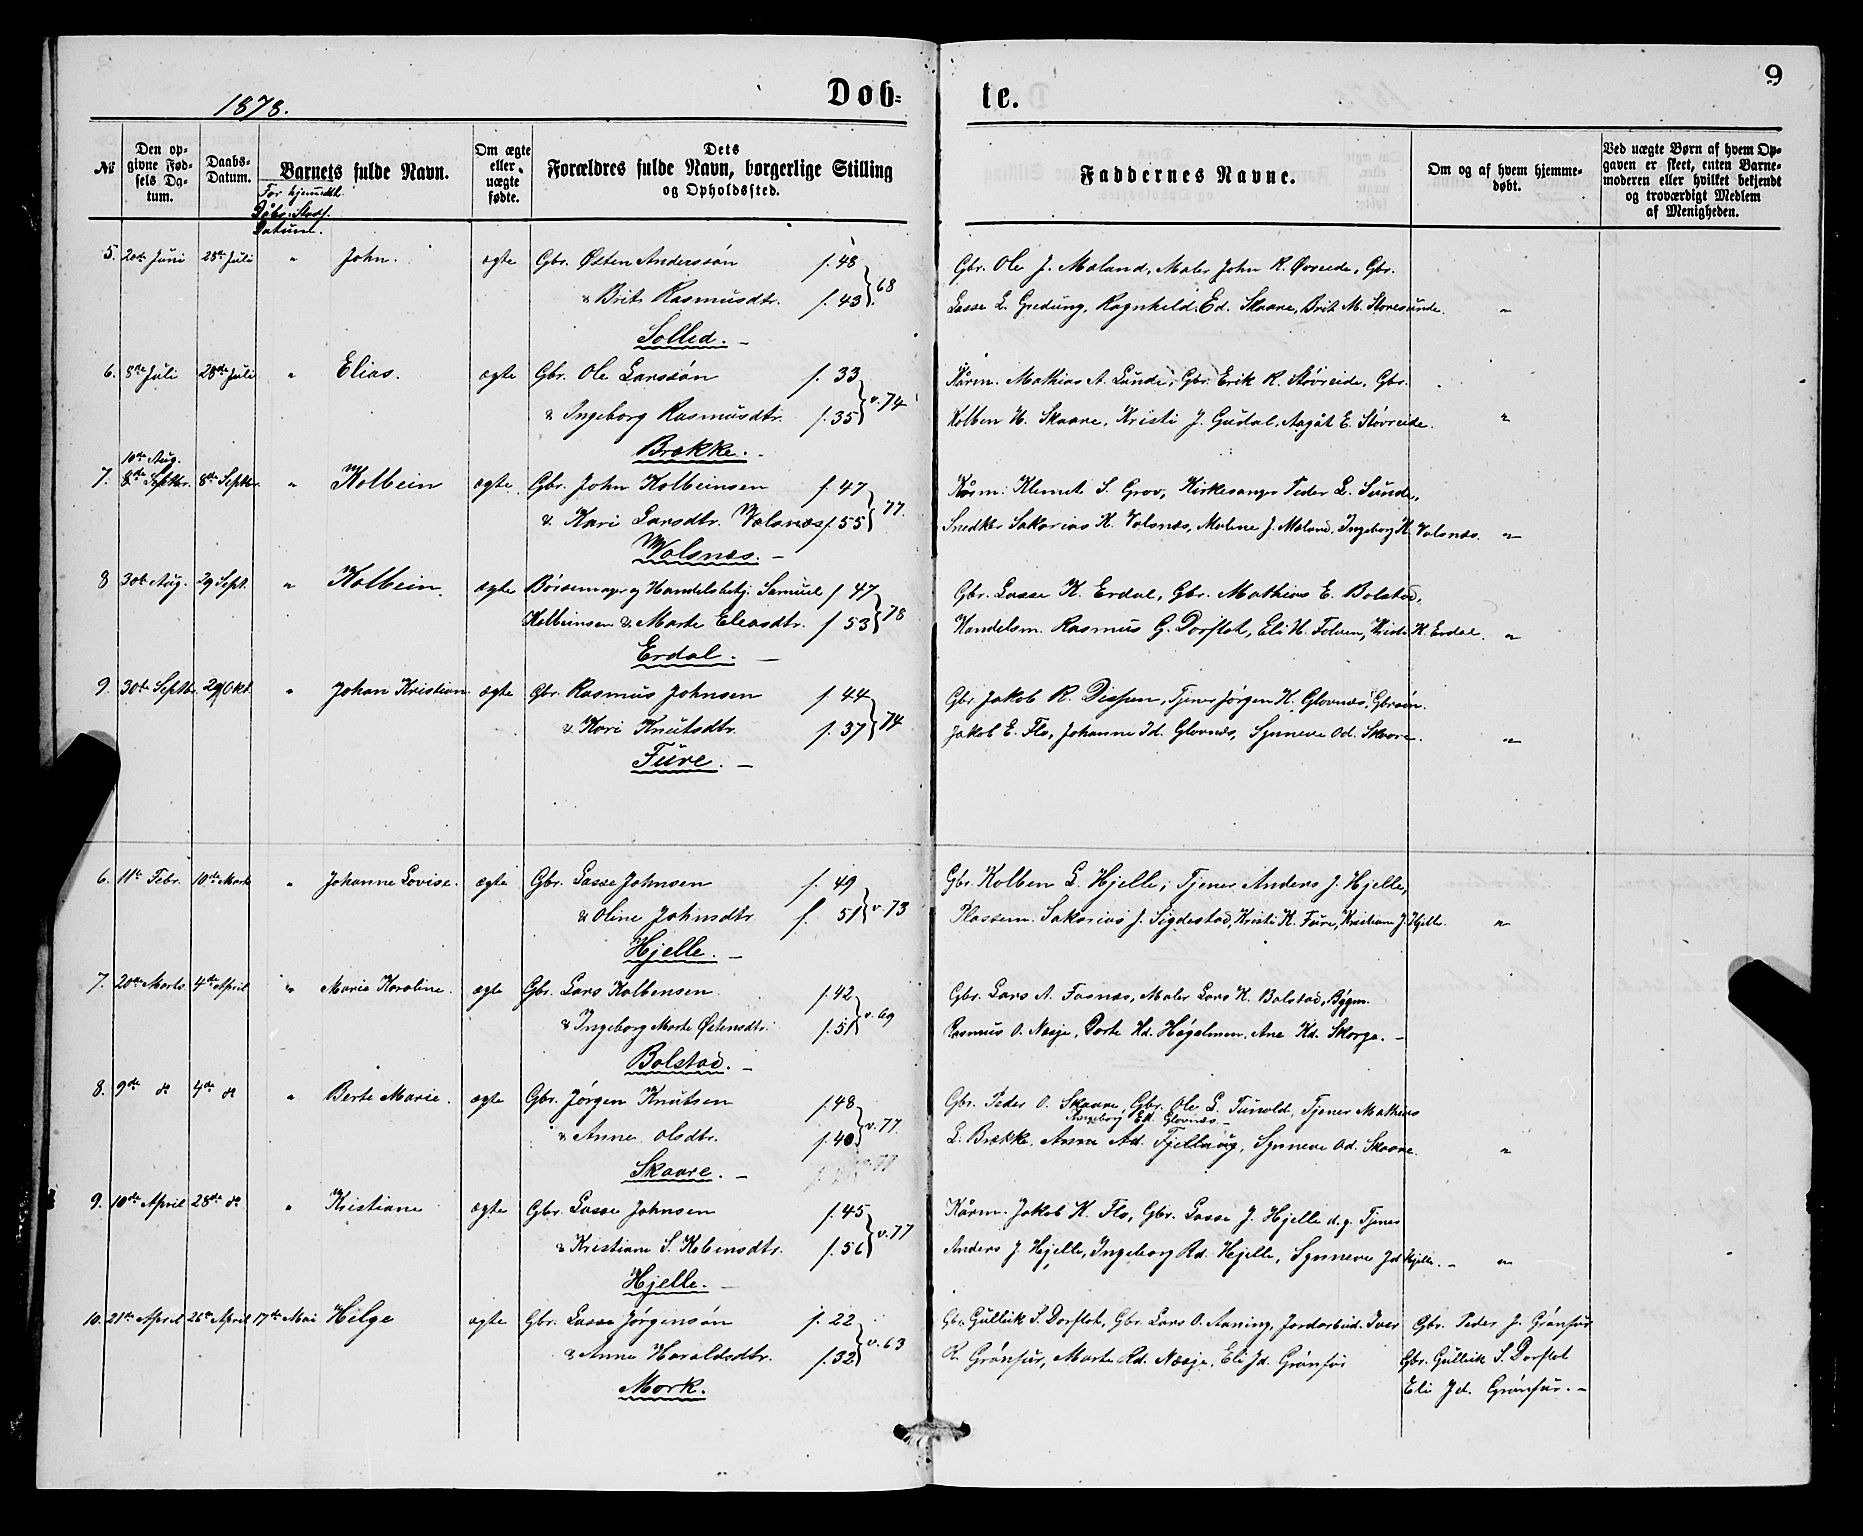 1878.
Døb=
te.
9
№
Den op-
givne Fød-
sels Da-
tum.
Daabs-
Datum.
Barnets fulde Navn.
For hjemdbt.
Døbs. Stadf.
Datum.
Om ægte
eller
uægte
fødte.
Dets
Forældres fulde Navn, borgerlige Stilling
og Opholdssted.
Faddernes Navne.
Om og af hvem hjemme-
døbt.
Ved uægte Børn af hvem Op-
gaven er skeet, enten Barne-
moderen eller hvilket bekjendt
og troværdigt Medlem
af Menigheden.
5. 20de Juni 28de Juli " John. ægte Gbr. Østen Anderssøn f. 48
& Brite Rasmusdtr. f. 43 } 68
Solled. -
Gbr. Ole J. Maland, Maler John R. Øvreide, Gbr.
Lasse L. Gredung, Ragnhild Ed. Skaare, Brit M. Storesunde. "
6. 8de Juli 28de Juli " Elias. ægte Gbr. Ole Larssøn f. 33
& Ingeborg Rasmusdtr. f. 35 } v. 74
Brække. -
Mathias A. Lunde, Gbr. Erik R. Støvreide, Gbr.
Kolben H. Skaare, Kristi J. Gudal, Aagåt E. Støvreide. "
10de Aug.
7. 8de Septbr. 8de Septbr. " Kolbein ægte Gbr. John Kolbeinsen f. 47
& Kari Larsdtr. Volsnæs f. 55 } 77.
Volsnæs. -
Klemet S. Grov, Kirkesanger Peder L. Sunde,
Snedker Sakarias K. Volsnæs, Malene J. Maland, Ingeborg K. Volsnæs. "
8 30de Aug. 29 Sept. " Kolbein. ægte Børsemager og Handelsbetj. Samuel f 47
Kolbeinsen & Marte Eleasdtr. f 53 } 78
Erdal. -
Gbr. Lasse K. Erdal, Gbr. Mathias E. Bolstad,
Handelsm. Rasmus G. Dorflot, Eli H. Folven, K. Erdal. "
9. 30de Septbr. 29 Okt. " Johan Kristian ægte Gbr. Rasmus Johnsen f 44
& Kari Knutsdtr. f. 37 } 74
Fure. -
Gbr. Jakob R. Tjener Jørgen K. Glovnæs, Gbrsøn.
Jakob E. Flo, Johanne Id. Glovnæs, Synneve Od. Skaare. "
6. 11te Febr. 10de Marts " Johanne Lovise. ægte Gbr. Lasse Johnsen f. 49
& Oline Johnsdtr. f. 51 } v. 73
Hjelle. -
Gbr. Kolben L. Hjelle, Tjener Anders J. Hjelle,
Sakarias J. Sigdestad, Kristi K. Fure, Kristiane J. Hjelle. "
7. 20de Marts 4de April " Marie Karoline. ægte Gbr. Lars Kolbensen f. 42
& Ingeborg Marte Østensdtr. f. 51 } v. 69
Bolstad. -
Gbr. Lars A. Fosnæs, Maler Lars K. Bolstad, Bygm.
Rasmus O. Næsje, Dorte Hd. Høgalmen, Ane Kd. Skorge. -
8. 9de do 4de do " Berte Marie. ægte Gbr. Jørgen Knutsen f. 48
& Anne Olsdtr. f. 40 } v. 77.
Skaare. -
Gbr. Peder O. Skaare, Gbr. Ole L. Tunold, Tjener Mathias
Ingeborg Ed. Glovnæs -
L. Brække, Anna Ad. Fjellaug, Synneve Od. Skaare. "
9. 10de April 28de do " Kristiane ægte Gbr. Lasse Johnsen f. 45
& Kristiane S. Kolbensdtr. f. 56 } v. 77
Hjelle. -
Kårm. Jakob K. Flo, Gbr. Lasse J. Hjelle d.y. Tjener
Anders J. Hjelle, Ingeborg Rd. Hjelle, Synneve Jd. Hjelle. - "
10. 21de April 26de April 17de Mai Helge ægte Gbr. Lasse Jørgensøn f. 22
& Anne Haraldsdtr. f. 32 } v. 63
Mork.
Gbr. Gulleik S. Dorflot, Gbr. Lars O. Aaning, Jordarbeid. Iver
R. Grønfur, Marte Rd. Næsje, Eli Jd. Grønfur
Gbr. Peder J. Grønfur
Gbr. Gulleik S. Dorflot
Eli Jd. Grønfur. -